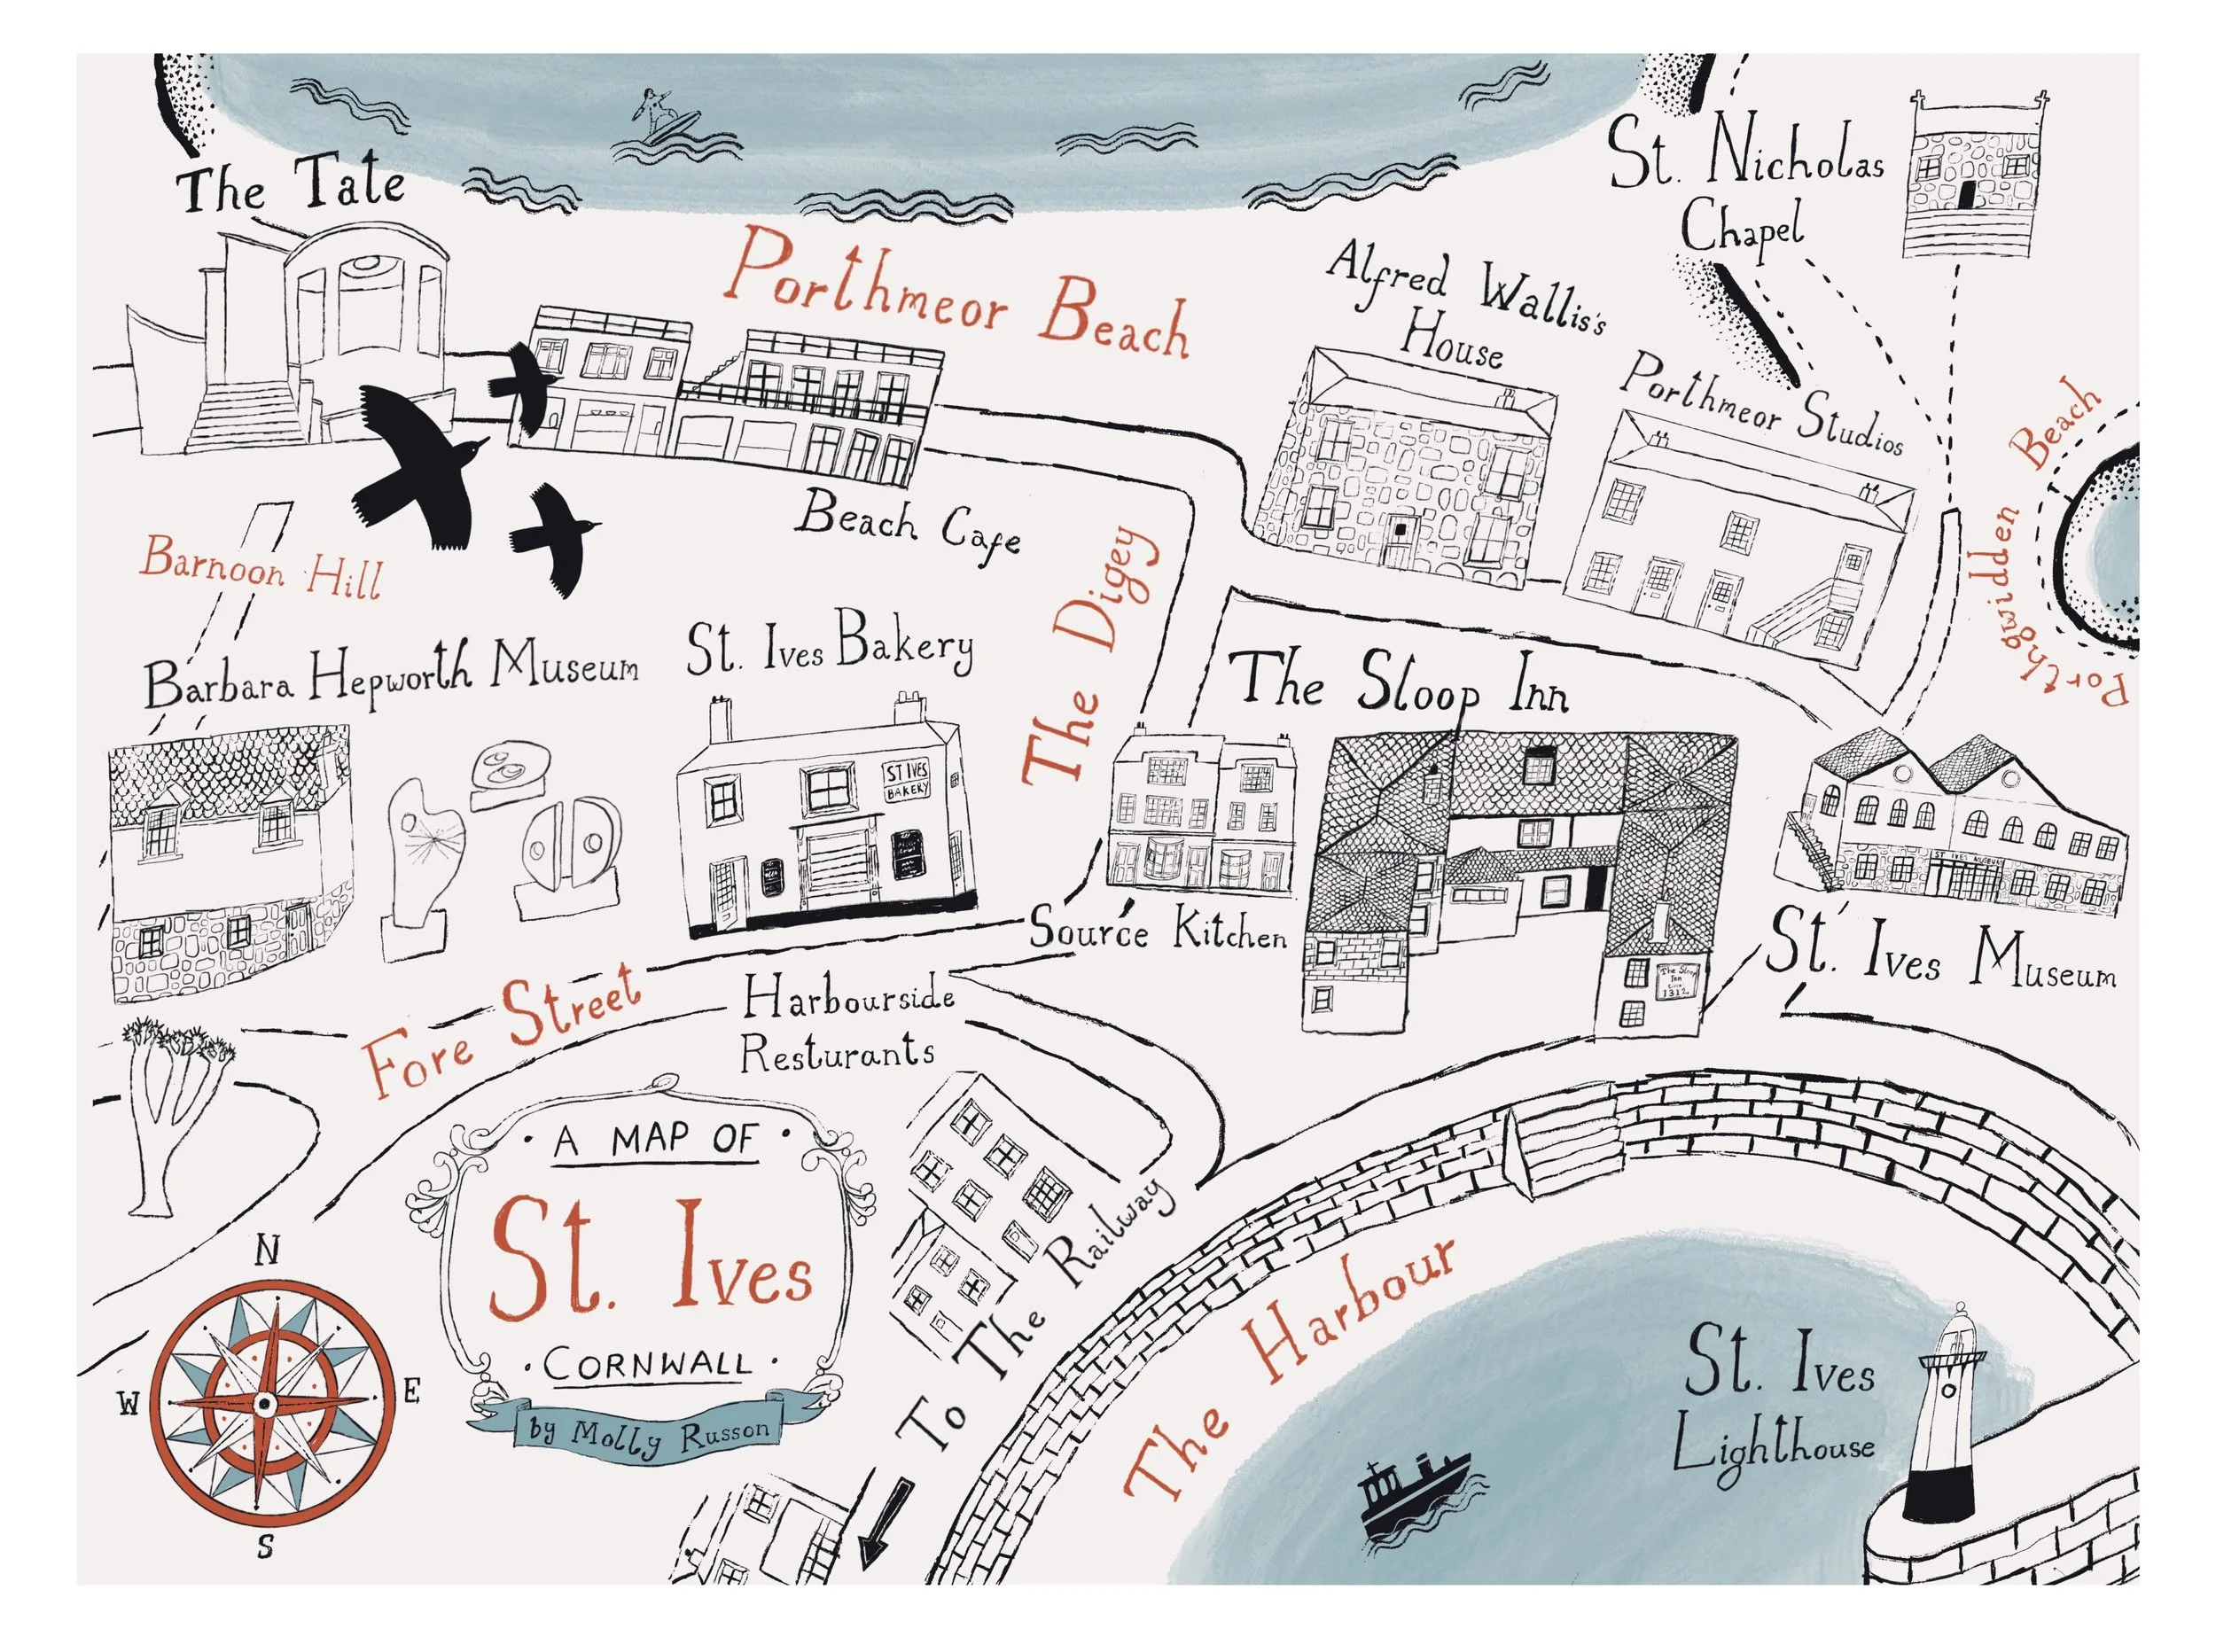 The Tate
Porthmeor Beach
St. Nicholas
Chapel
Alfred Wallis's
House
Porthmeor Studios
Porthgwidden
Beach
Beach Cafe
Barnoon Hill
The Digey
Barbara Hepworth Museum
St. Ives Bakery
ST IVES
BAKERY
The Sloop Inn
The Sloop
Inn
Circa
1312
ST IVES MUSEUM
Source Kitchen
St. Ives Museum
Fore Street
Harbourside
Resturants
A MAP OF
St. Ives
CORNWALL
by Molly Russon
To The Railway
The Harbour
St. Ives
Lighthouse
N
W
E
S